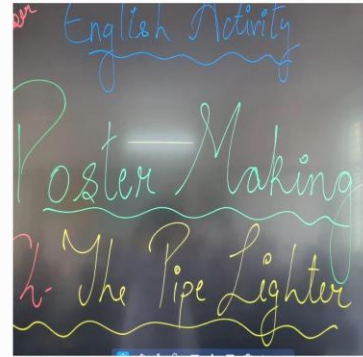 English Activity
Poster-Making
Ch- The Pipe Lighter